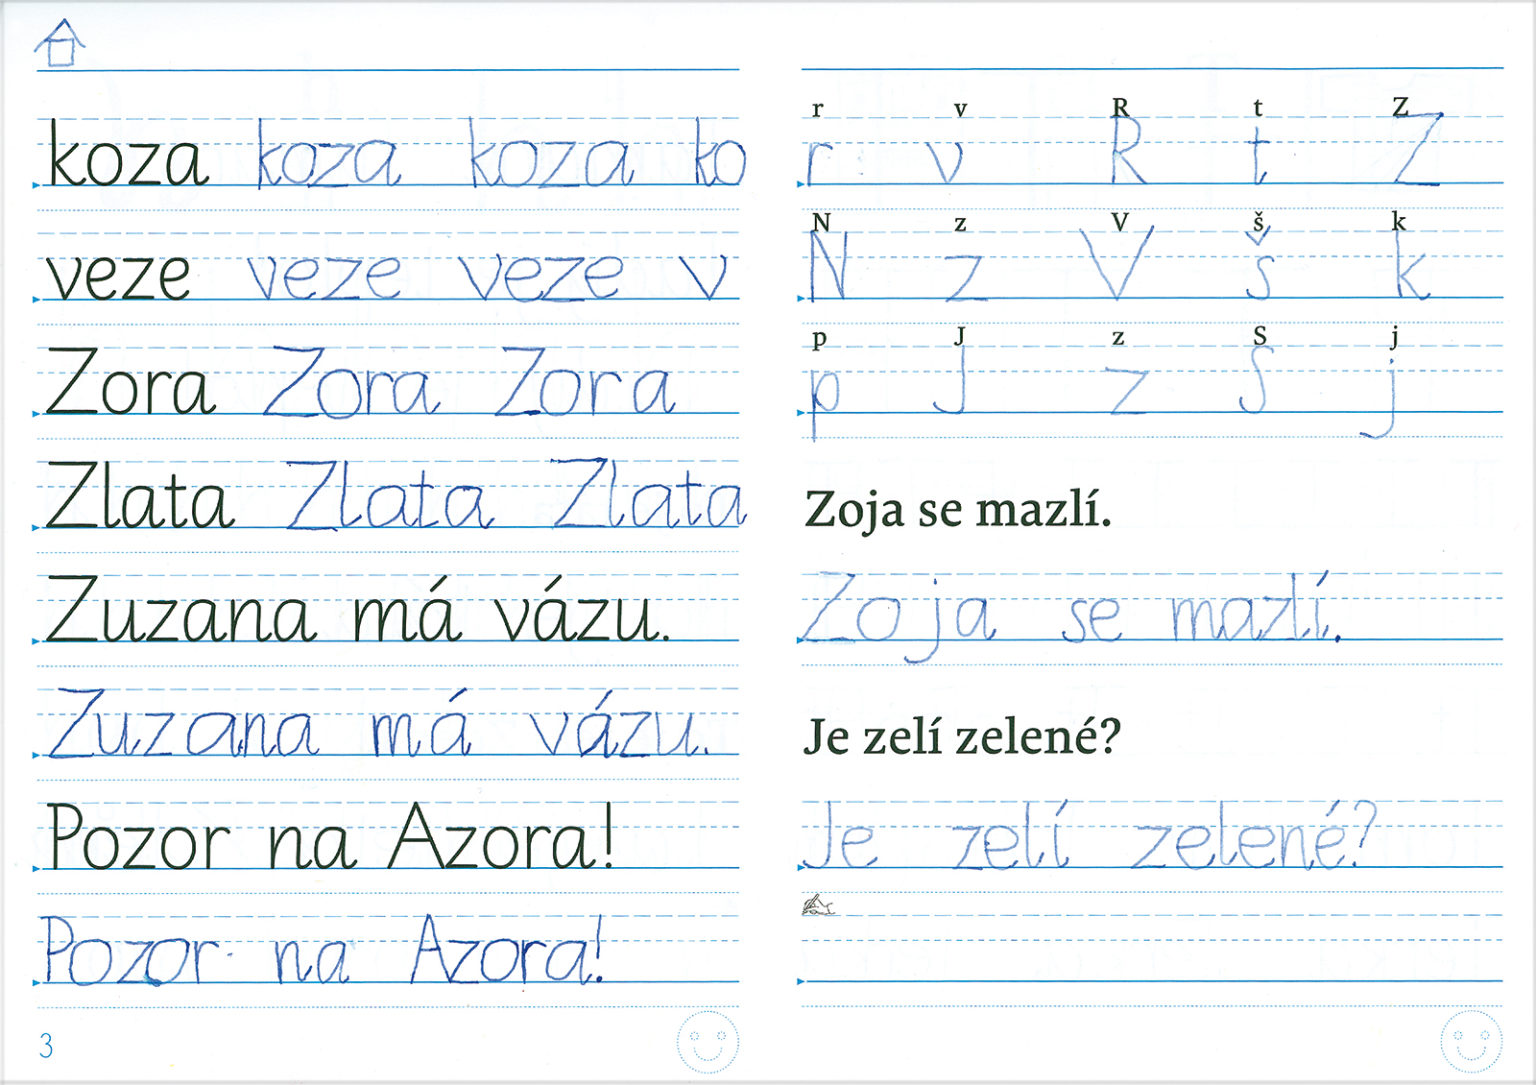 koza koza koza ko
veze veze veze v
Zora Zora Zora
Zlata Zlata Zlata
Zuzana má vázu.
Zuzana má vázu.
Pozor na Azora!
Pozor na Azora!
3
r v R t Z
r v R t Z
N z V š k
N z V š k
p J z S j
p J z S j
Zoja se mazlí.
Zoja se mazlí.
Je zelí zelené?
Je zelí zelené?